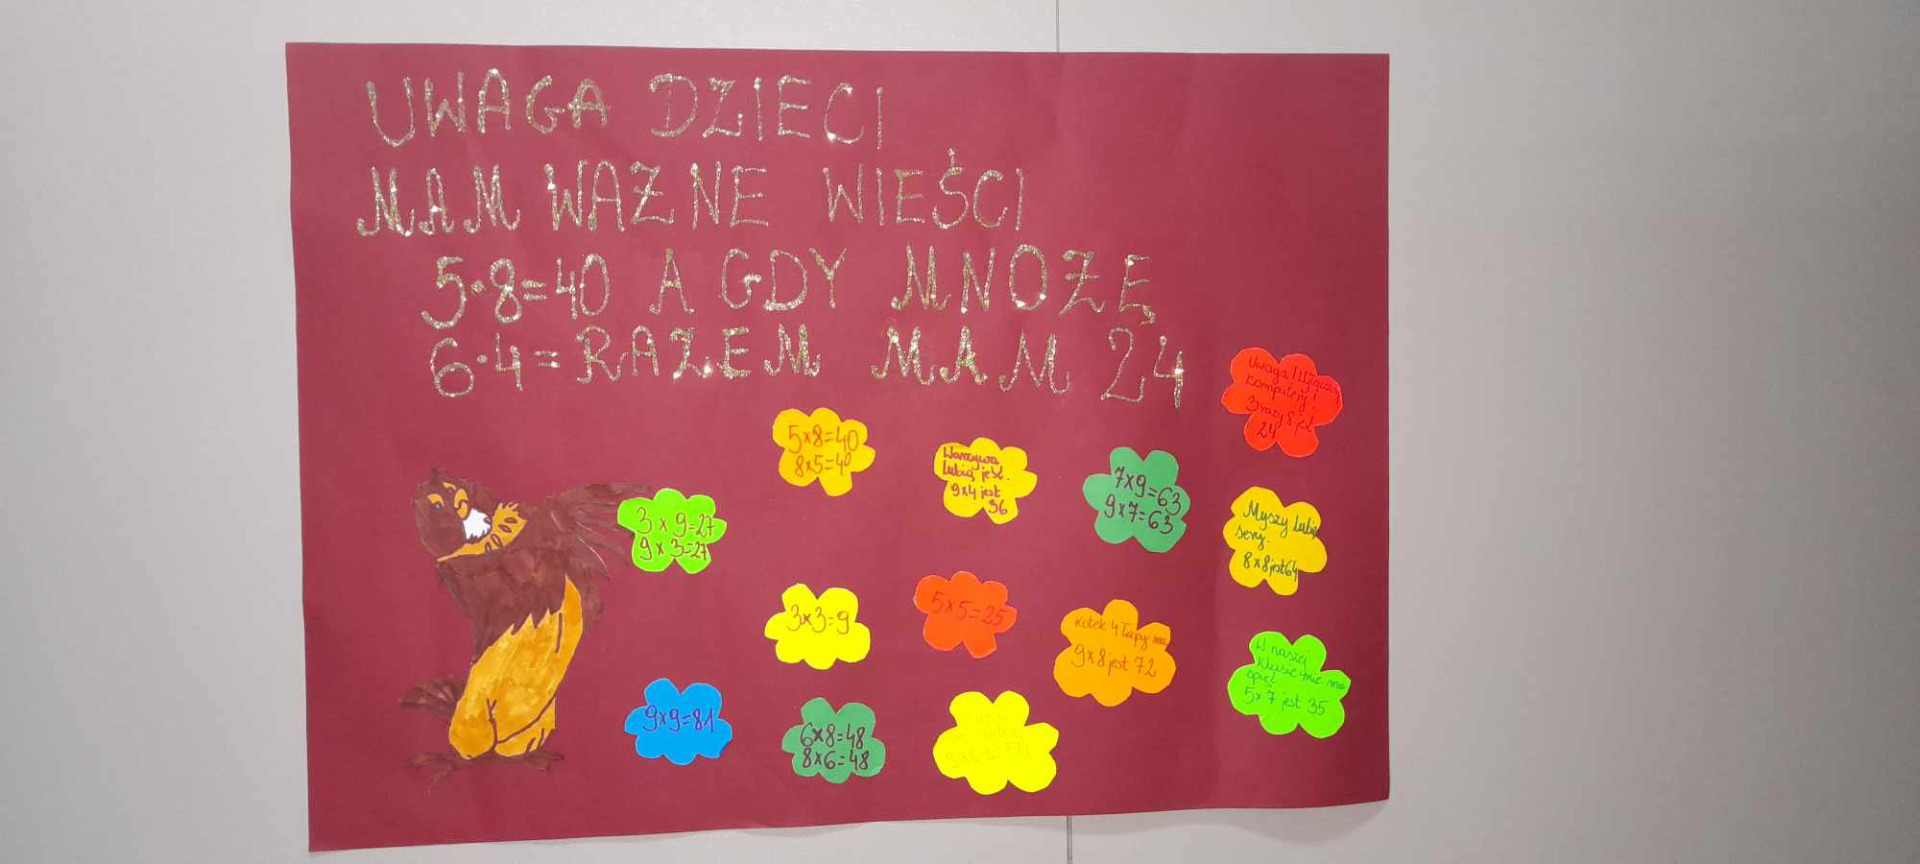 UWAGA DZIECI
MAM WAŻNE WIEŚCI
5·8=40 A GDY MNOŻĘ
6·4= RAZEM MAM 24
Uwaga! Włączam
komputery!
3 razy 8 jest
24
5x8=40
8x5=40
Warzywa
lubią jeść.
9x4 jest
36
7x9=63
9x7=63
3x9=27
9x3=27
Myszy lubią
sery.
8x8 jest 64
3x3=9
5x5=25
Kotek 4 łapy ma
9x8 jest 72
W naszej
klasie nie ma
5x7 jest 35
9x9=81
6x8=48
8x6=48